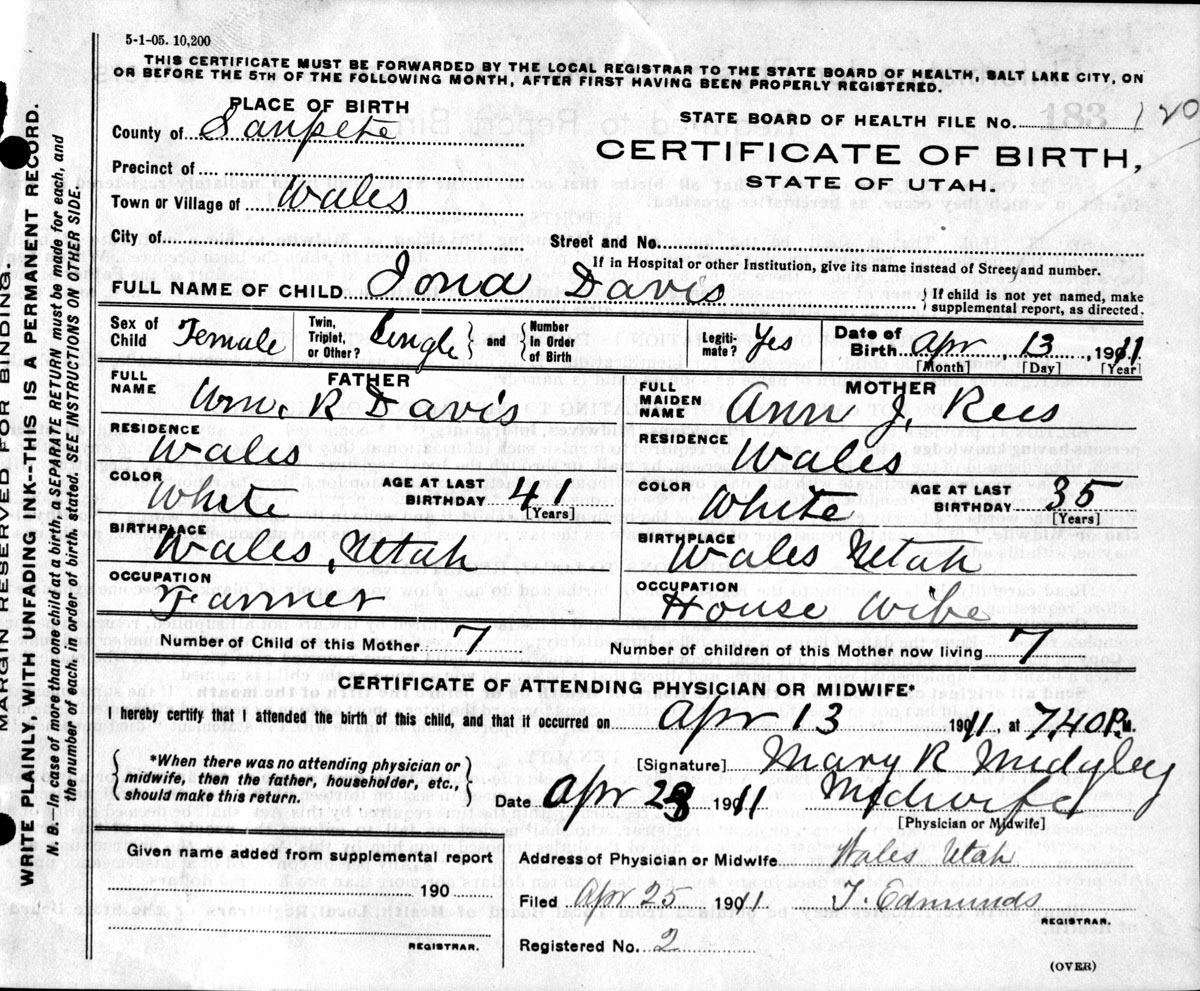 5-1-05. 10,200
THIS CERTIFICATE MUST BE FORWARDED BY THE LOCAL REGISTRAR TO THE STATE BOARD OF HEALTH, SALT LAKE CITY, ON
OR BEFORE THE 5TH OF THE FOLLOWING MONTH, AFTER FIRST HAVING BEEN PROPERLY REGISTERED.
PLACE OF BIRTH
County of Sanpete
STATE BOARD OF HEALTH FILE No. 120
183
CERTIFICATE OF BIRTH,
STATE OF UTAH.
Precinct of
Town or Village of Wales
City of
Street and No.
If in Hospital or other Institution, give its name instead of Street and number.
FULL NAME OF CHILD Iona Davis {If child is not yet named, make supplemental report, as directed.
Sex of Child Female Twin, Triplet, or Other? Single } and { Number In Order of Birth Legitimate? Yes Date of Birth Apr, 13, 1911
[Month] [Day] [Year]
FATHER
FULL NAME Wm. R Davis
MOTHER
MAIDEN NAME Ann J, Rees
RESIDENCE Wales
RESIDENCE Wales
COLOR White AGE AT LAST BIRTHDAY 41 [Years]
COLOR White AGE AT LAST BIRTHDAY 35 [Years]
BIRTHPLACE Wales, Utah
BIRTHPLACE Wales Utah
OCCUPATION Farmer
OCCUPATION House Wife
Number of Child of this Mother 7
Number of children of this Mother now living 7
CERTIFICATE OF ATTENDING PHYSICIAN OR MIDWIFE*
I hereby certify that I attended the birth of this child, and that it occurred on Apr 13 1911, at 7,40 P.M.
*When there was no attending physician or
midwife, then the father, householder, etc.,
should make this return.
[Signature] Mary R Midgley
Date Apr 23 1911 Midwife
[Physician or Midwife]
Given name added from supplemental report
190
REGISTRAR.
Address of Physician or Midwife Wales Utah
Filed Apr 25 1911 T. Edmunds
REGISTRAR.
Registered No. 2
(OVER)
MARGIN RESERVED FOR BINDING.
WRITE PLAINLY, WITH UNFADING INK--THIS IS A PERMANENT RECORD.
N. B.—In case of more than one child at a birth, a SEPARATE RETURN must be made for each, and
the number of each, in order of birth, stated. SEE INSTRUCTIONS ON OTHER SIDE.